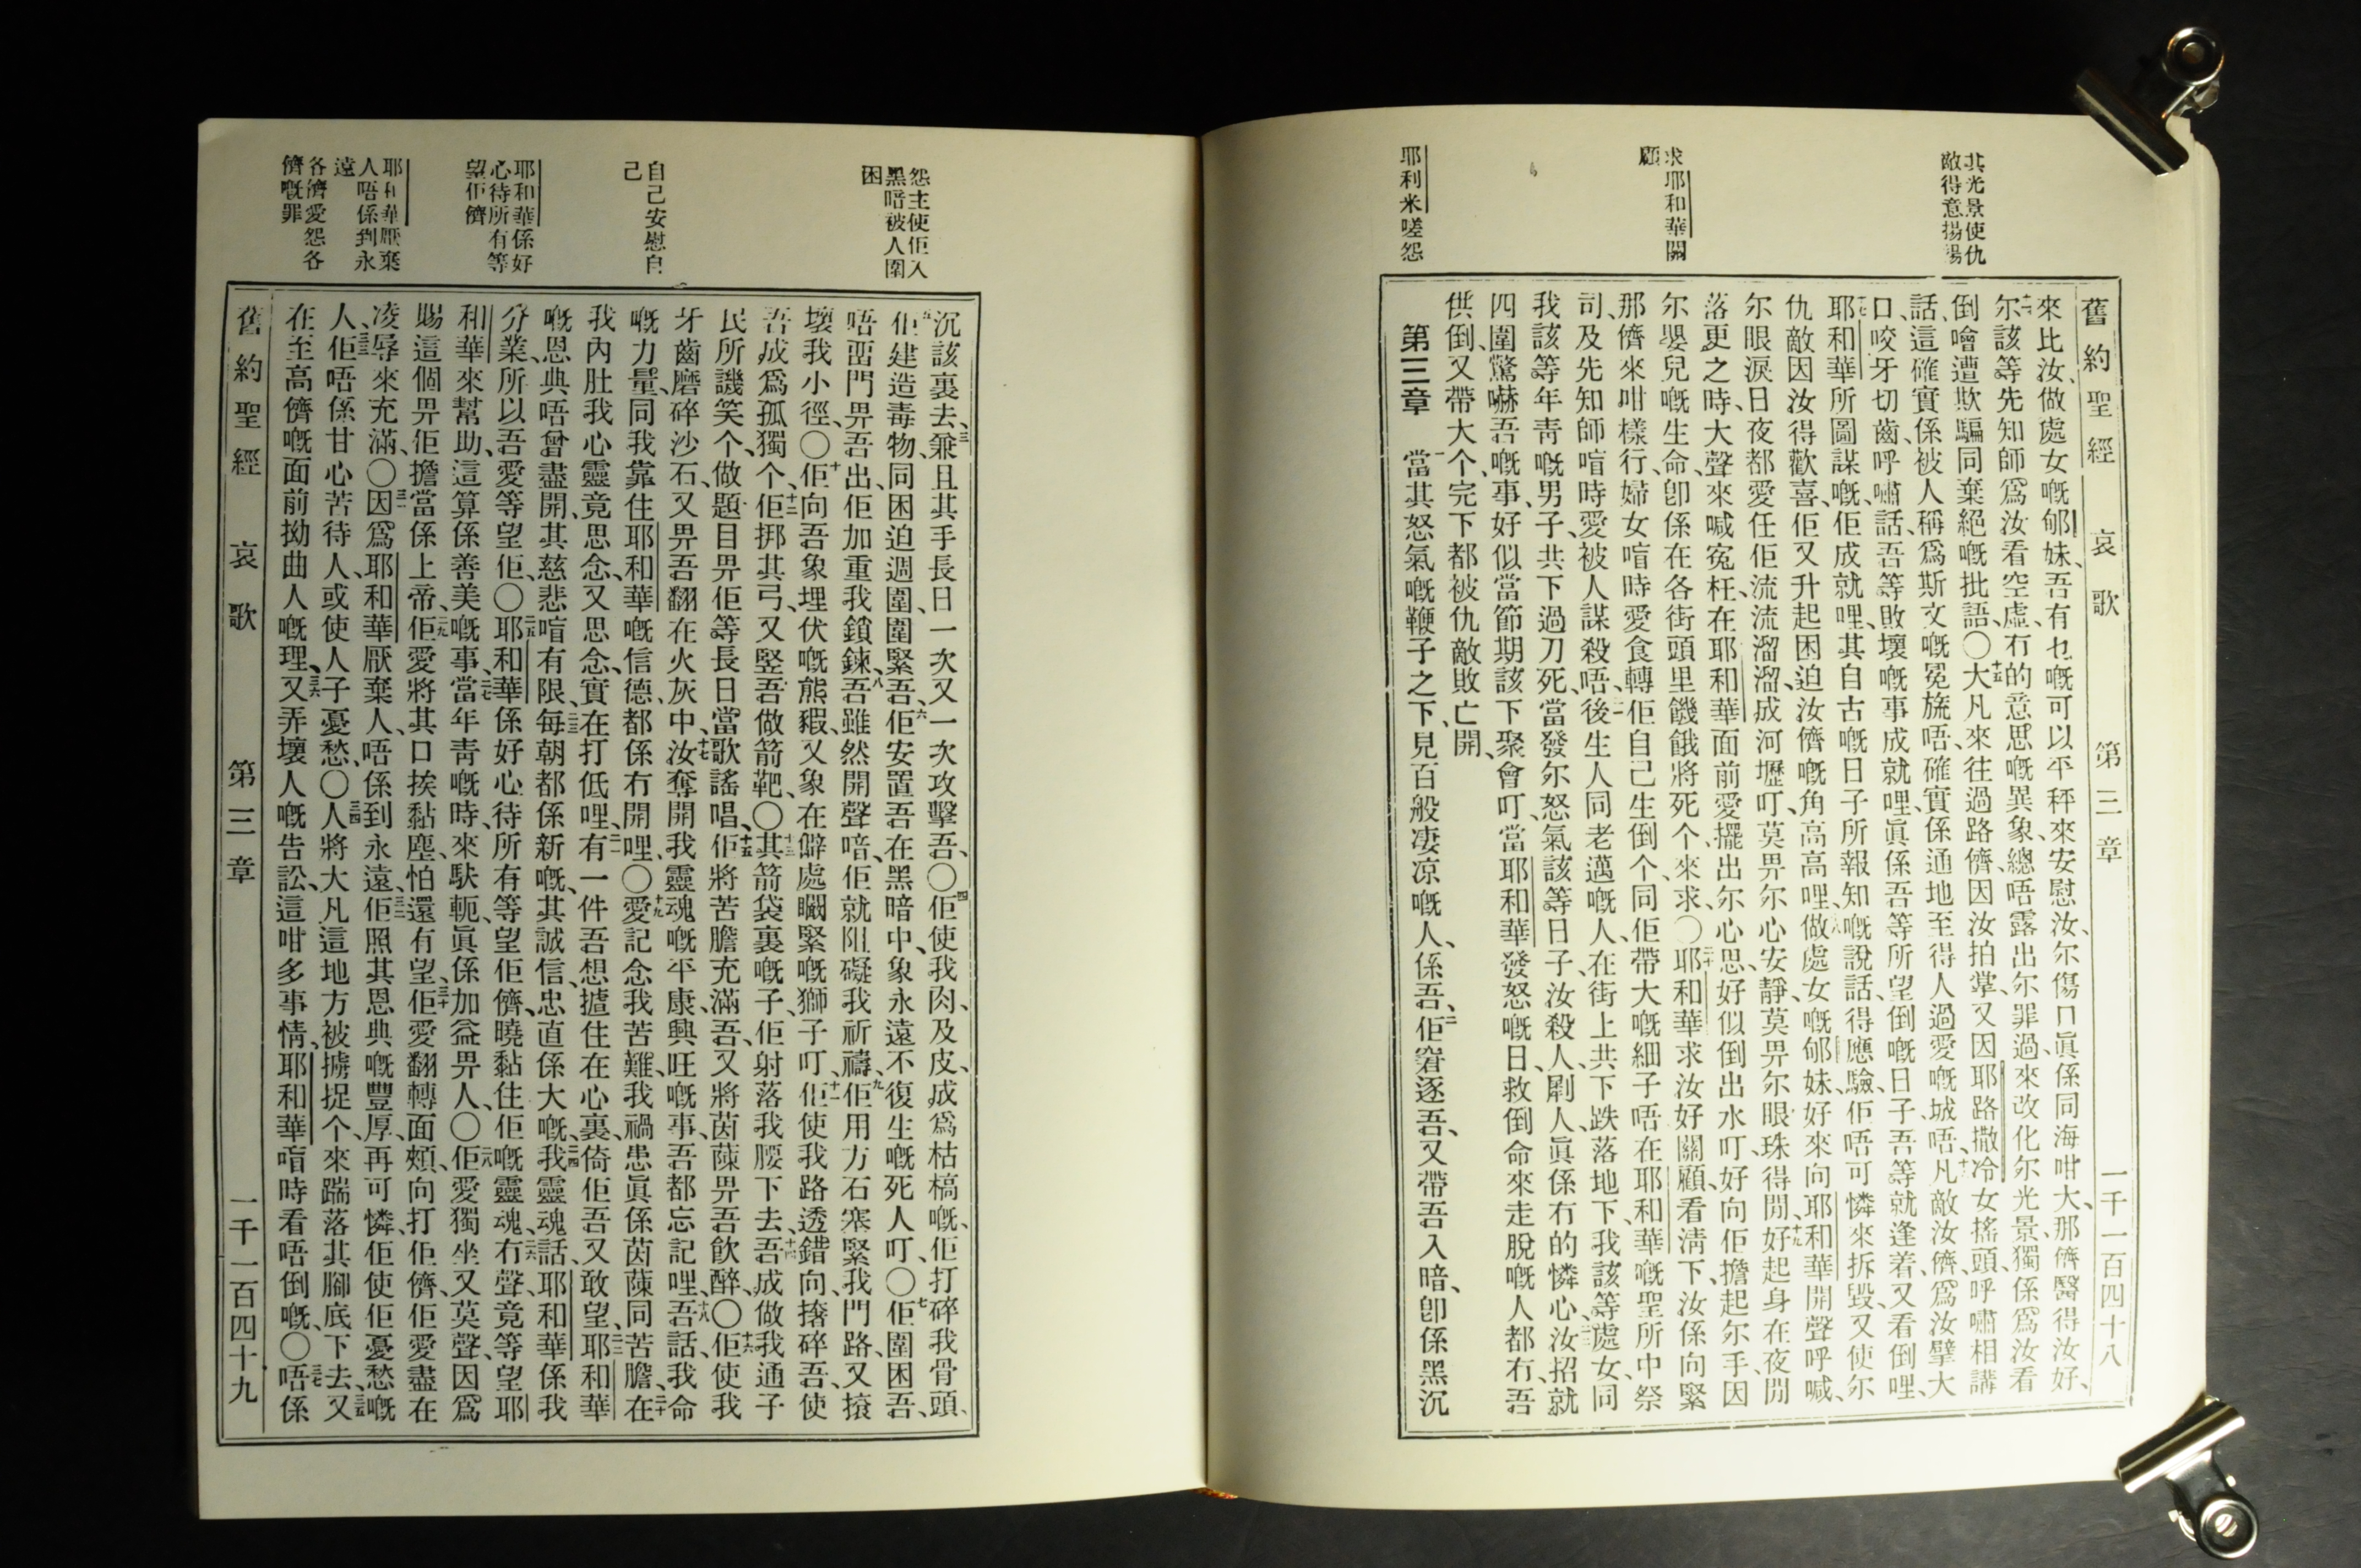 其光景使仇
敵得意揚揚
求耶和華關
顧
耶利米嗟怨
舊約聖經 哀歌 第三章 一千一百四十八
來比汝、做處女嘅郇妹、吾有乜嘅可以平秤來安慰汝、尔傷口眞係同海咁大、那儕醫得汝好、
尔該等先知師爲汝看空虛冇的意思嘅異象、總唔露出尔罪過來改化尔光景、獨係爲汝看
倒噲遭欺騙同棄絕嘅批語、〇十五大凡來往過路儕、因汝拍掌、又因耶路撒冷女搖頭、呼嘯相講
話、這確實係被人稱爲斯文嘅冕旒唔、確實係通地至得人過愛嘅城唔、十六凡敵汝儕、爲汝擘大
口、咬牙切齒、呼嘯話、吾等敗壞嘅事成就哩、眞係吾等所望倒嘅日子、吾等就逢着、又看倒哩、
十七耶和華所圖謀嘅、佢成就哩、其自古嘅日子所報知嘅說話、得應驗、佢唔可憐來拆毀、又使尔
仇敵因汝得歡喜、佢又升起困迫汝儕嘅角高高哩、十八做處女嘅郇妹、好來向耶和華開聲呼喊、
尔眼淚日夜都愛任佢流流溜溜、成河壢叮、莫畀尔心安靜、莫畀尔眼珠得閒、十九好起身在夜間
落更之時、大聲來喊冤枉、在耶和華面前愛擺出尔心思、好似倒出水叮、好向佢擔起尔手、因
尔嬰兒嘅生命、卽係在各街頭里饑餓將死个、來求、〇二十耶和華求汝好關顧、看淸下、汝係向緊
那儕來咁樣行、婦女喧時愛食轉佢自己生倒个、同佢帶大嘅細子唔、在耶和華嘅聖所中祭
司、及先知師喧時愛被人謀殺唔、後生人同老邁嘅人、在街上共下跌落地下、我該等處女、同
我該等年靑嘅男子、共下過刀死、當發尔怒氣該等日子、汝殺人、劏人、眞係冇的憐心、汝招就
四圍驚嚇吾嘅事、好似當節期該下聚會叮、當耶和華發怒嘅日、救倒命來走脫嘅人都冇、吾
供倒、又帶大个、完下都被仇敵敗亡開、
第三章 一當其怒氣嘅鞭子之下、見百般凄凉嘅人、係吾、二佢窘逐吾、又帶吾入暗、卽係黑沉
怨主使佢入
黑暗被人圍
困
自己安慰自
己
耶和華係好
心待所有等
望佢儕
耶和華厭棄
人唔係到永
遠
各儕愛怨各
儕嘅罪
沉該裏去、三兼且其手長日一次又一次攻擊吾、〇四佢使我肉、及皮、成爲枯槁嘅、佢打碎我骨頭、
五佢建造毒物、同困迫週圍、圍緊吾、六佢安置吾在黑暗中、象永遠不復生嘅死人叮、〇七佢圍困吾、
唔畀門畀吾出、佢加重我鎖鍊、八吾雖然開聲喑、佢就阻礙我祈禱、九佢用方石塞緊我門路、又㨍
壞我小徑、〇十佢向吾象埋伏嘅熊豭、又象在僻處矙緊嘅獅子叮、十一佢使我路透錯向、撦碎吾、使
吾成爲孤獨个、十二佢挷其弓、又竪吾做箭靶、〇十三其箭袋裏嘅子、佢射落我腰下去、十四吾成做我通子
民所譏笑个、做題目畀佢等長日當歌謠唱、十五佢將苦膽充滿吾、又將茵蔯畀吾飮醉、〇十六佢使我
牙齒磨碎沙石、又畀吾翻在火灰中、十七汝奪開我靈魂嘅平康、興旺嘅事、吾都忘記哩、十八吾話、我命
嘅力量、同我靠住耶和華嘅信德、都係冇開哩、〇十九愛記念我苦難、我禍患、眞係茵蔯同苦膽、二十在
我內肚、我心靈竟思念、又思念、實在打低哩、二一有一件吾想摣住在心裏、倚佢吾又敢望、二二耶和華
嘅恩典唔曾盡開、其慈悲喧有限、二三每朝都係新嘅、其誠信、忠直係大嘅、二四我靈魂話、耶和華係我
分業、所以吾愛等望佢、〇二五耶和華係好心待所有等望佢儕、曉黏住佢嘅靈魂、二六冇聲、竟等望耶
和華來幫助、這算係善美嘅事、二七當年靑嘅時、來馱軛、眞係加益畀人、〇二八佢愛獨坐、又莫聲、因爲
賜這個畀佢擔當係上帝、二九佢愛將其口挨黏塵、怕還有望、三十佢愛翻轉面頰、向打佢儕、佢愛盡在
凌辱來充滿、〇三一因爲耶和華厭棄人、唔係到永遠、三二佢照其恩典嘅豐厚、再可憐佢使佢憂愁嘅
人、三三佢唔係甘心苦待人、或使人子憂愁、〇三四人將大凡這地方被擄捉个、來踹落其腳底下去、三五又
在至高儕嘅面前拗曲人嘅理、三六又弄壞人嘅告訟、這咁多事情、耶和華喧時看唔倒嘅、〇三七唔係
舊約聖經 哀歌 第三章 一千一百四十九